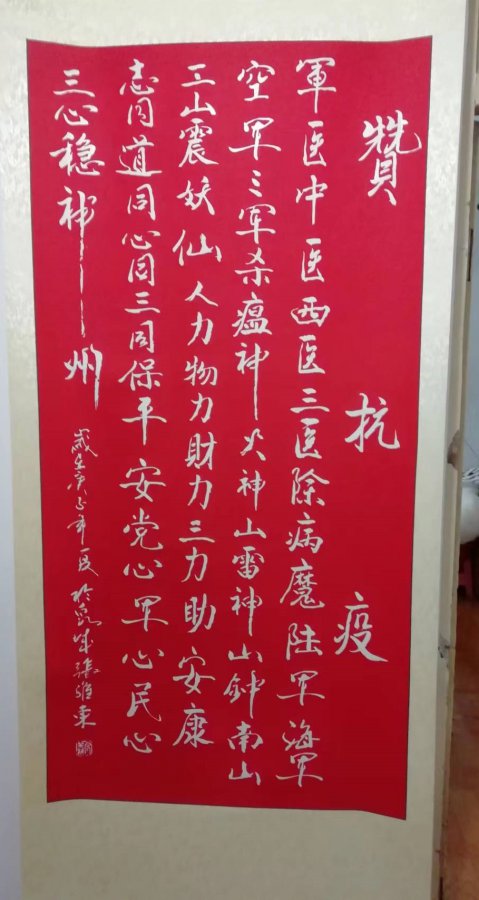 贊抗疫
軍医中医西医三医除病魔陆军海军
空军三军杀瘟神火神山雷神山鈡南山
三山震妖仙人力物力財力三力助安康
志同道同心同三同保平安党心军心民心
三心稳神州
歲在庚子年於张维東